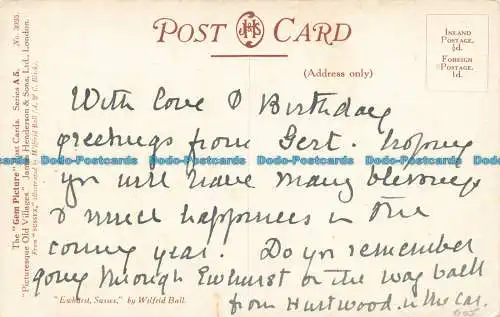 POST CARD
JH&S
(Address only)
INLAND
POSTAGE,
½d.
FOREIGN
POSTAGE,
1d.
The "Gem Picture" Post Cards. Series A 5, No. 3035.
"Picturesque Old Villages" James Henderson & Sons, Ltd., London.
From "SUSSEX," illustrated by Wilfrid Ball (A. & C. Black).
With love & Birthday
greetings from Gert. hoping
yr will have many blessings
& much happiness in the
coming year. Do yr remember
going through Ewhurst on the way back
from Hurtwood in the car.
"Ewhurst, Sussex," by Wilfrid Ball.
Dodo-Postcards Dodo-Postcards Dodo-Postcards Dodo-Postcards